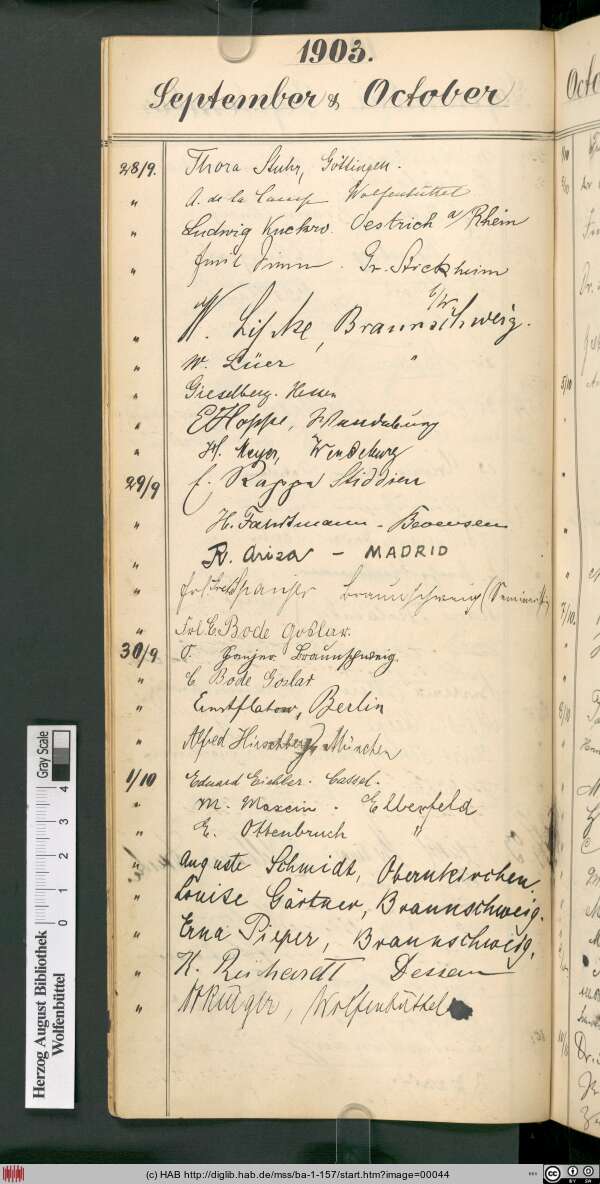 1903.
September & October
28/9. Thora Stuhr, Göttingen.
" A. de la Camp Wolfenbüttel
" Ludwig Oestrich a/Rhein
" Emil Timm. Gr. Stöckheim
" W. Braunschweig.
" W. Lüer "
" Gieselberg. Hessen
" E Hoppe, Wendeburg
" H. Meyer, Wendeburg
29/9 E. Rappe Stiddien
" H. Fahrtmann - Bevensen
" R. Ariza - MADRID
" Frl. Spanjer Braunschweig (Seminaristin
" Frl E Bode Goslar.
30/9 Spanjer Braunschweig.
" E Bode Goslar
" Ernst Flatow, Berlin
" Alfred Hirschberg, München
1/10 Eduard Eichler. Cassel.
" M. Elberfeld
" E. Ottenbruch "
" Auguste Schmidt, Obernkirchen.
" Louise Gärtner, Braunschweig.
" Erna Pieper, Braunschweig.
" K. Reichardt Dessau
" Krüger, Wolfenbüttel
Octo
5/10
7/10.
Gray Scale
0 1 2 3 4
Herzog August Bibliothek
Wolfenbüttel
(c) HAB http://diglib.hab.de/mss/ba-1-157/start.htm?image=00044
BY SA